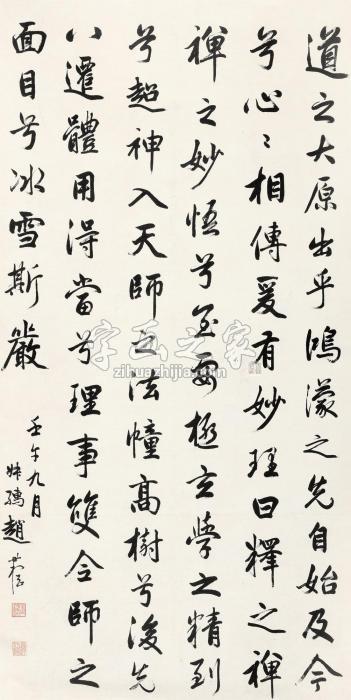 道之大原出乎鴻濛之先自始及今
兮心〻相傳爰有妙理曰釋之禪
禪之妙悟兮至要極玄學之精到
兮超神入天師之法幢高樹兮後先
八還體用得當兮理事雙全師之
面目兮冰雪斯嚴
壬午九月
趙
字画之家
zihuazhijia.com